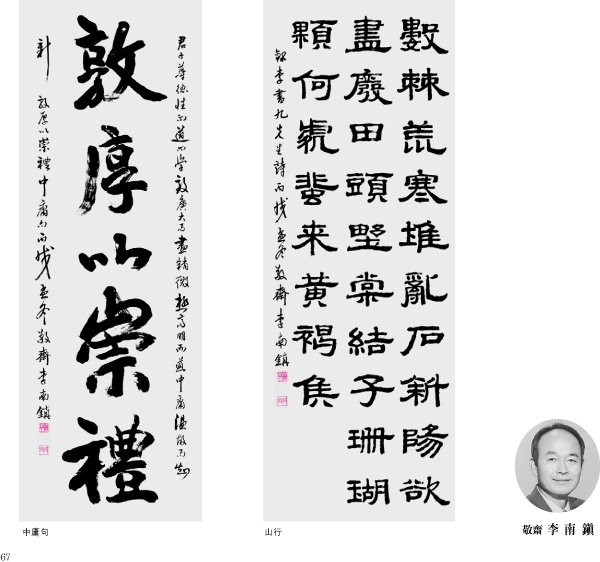 君子尊德性而道问學致廣大而盡精微極高明而道中庸溫故而知
敦厚以崇禮
新 敦厚以崇禮 中庸句 丙戌孟冬 敬齋 李南鎭
中庸句
數棘荒寒堆亂石斜陽欲
盡廢田頭野棠結子珊瑚
顆何處蜚来黄褐侯
録李書九先生詩 丙戌孟冬 敬齋 李南鎭
山行
敬齋 李南鎭
67